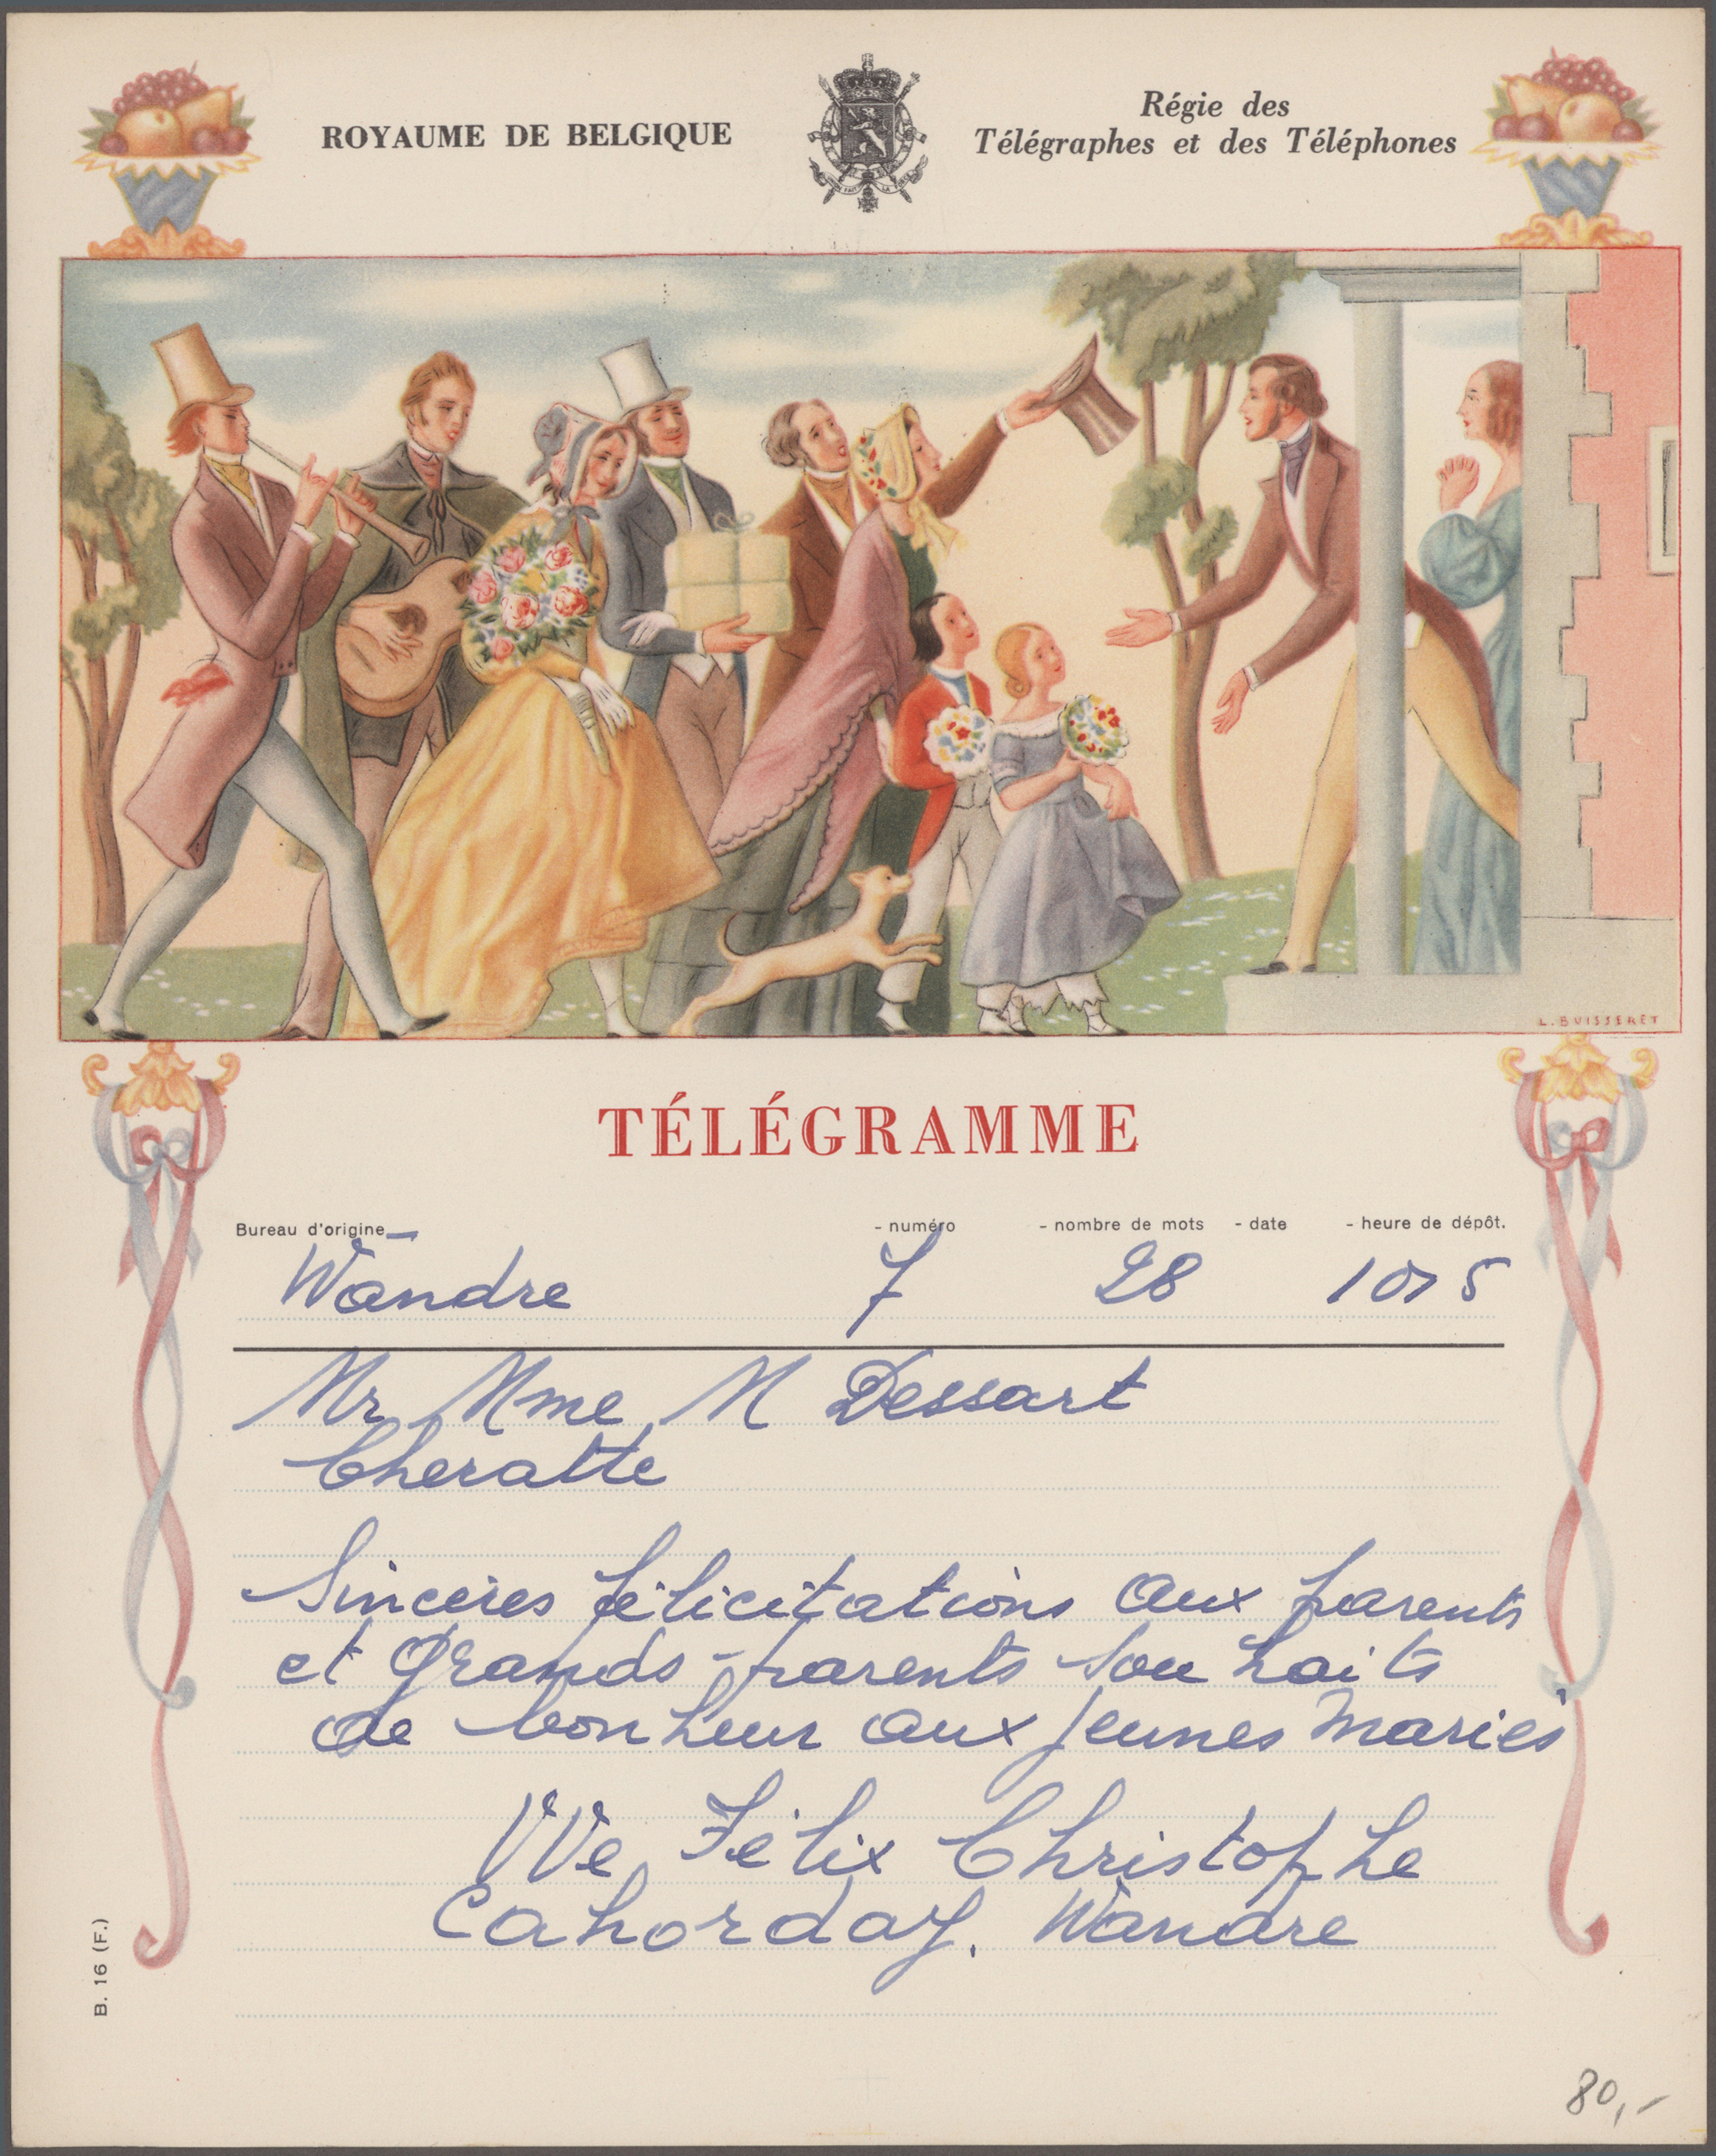 ROYAUME DE BELGIQUE
Régie des
Télégraphes et des Téléphones
L. BUISSERET
TÉLÉGRAMME
Bureau d'origine - numéro - nombre de mots - date - heure de dépôt.
Wandre 7 28 1015
Mr Mme M Dessart
Cheratte
Sincères félicitations aux parents
et Grands-parents souhaits
de bonheur aux jeunes mariés
Vve Félix Christophe
Cahorday. Wandre
B. 16 (F.)
80,-